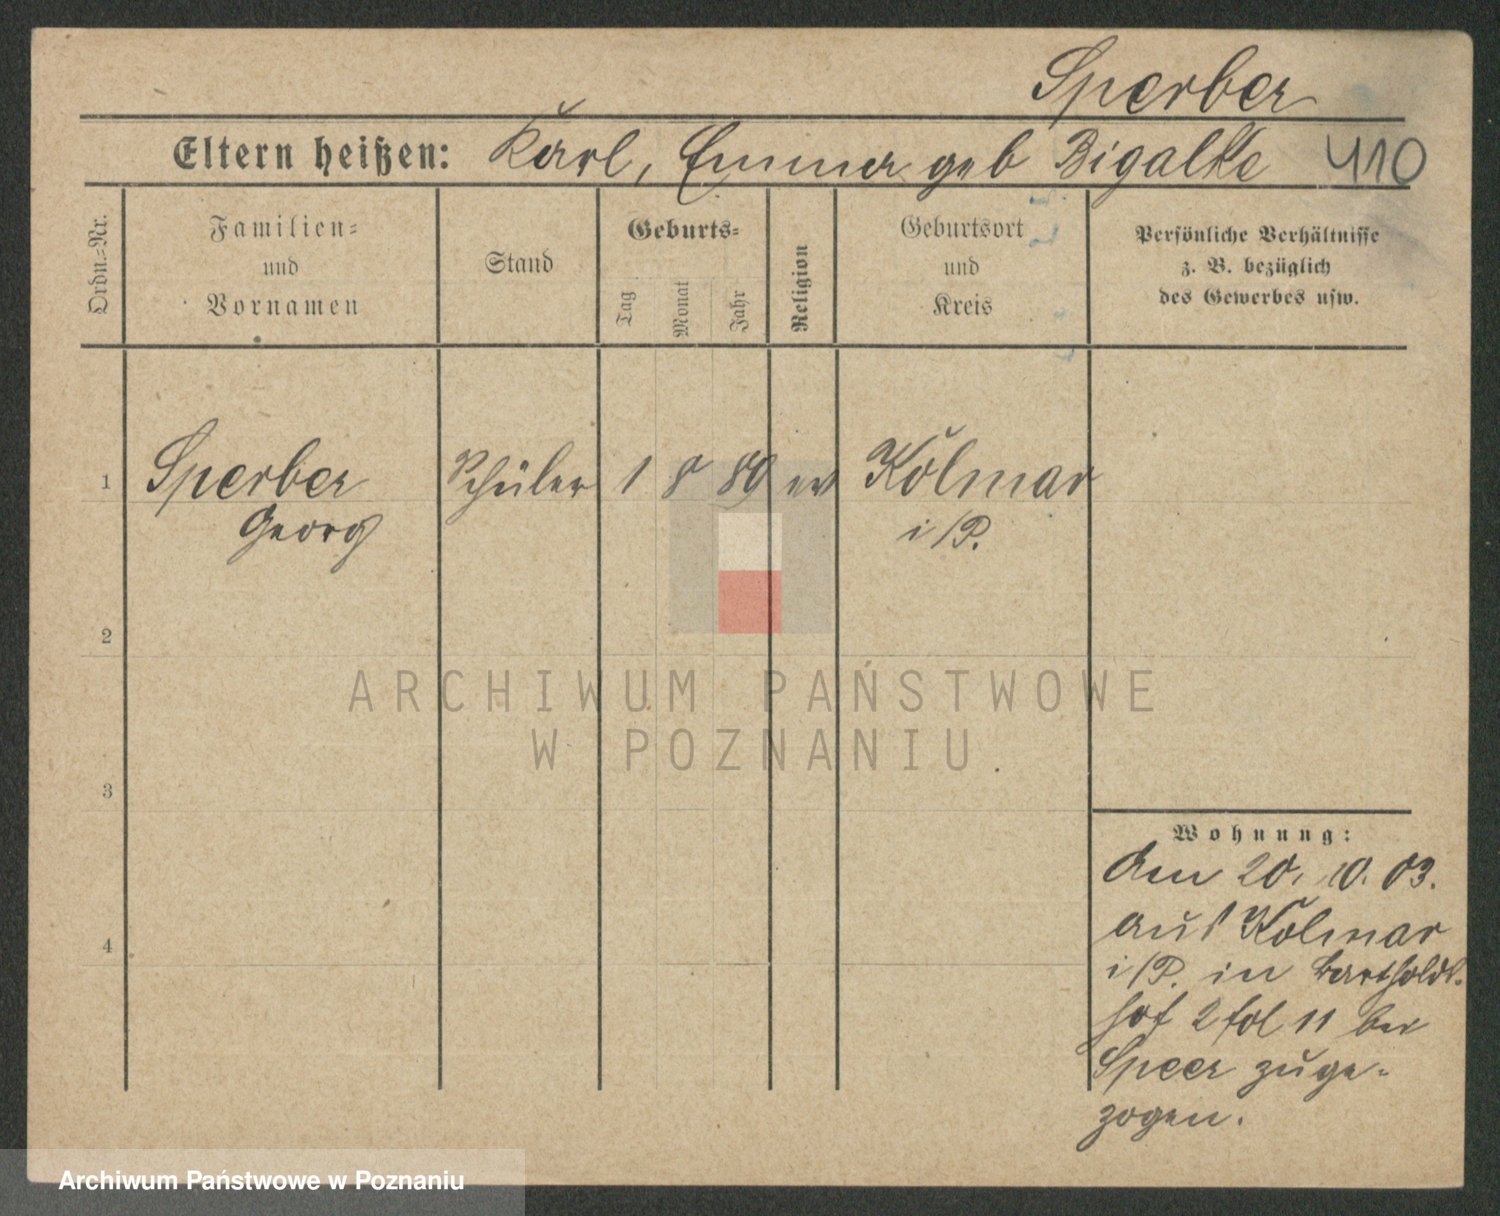 Sperber
Eltern heißen: Karl, Emma geb Bigalke 410
Ordn.=Nr.
Familien=
und
Vornamen
Stand
Geburts=
Tag
Monat
Jahr
Religion
Geburtsort
und
Kreis
Persönliche Verhältnisse
z. B. bezüglich
des Gewerbes usw.
1 Sperber Schüler 1 8 89 ev Kolmar
Georg i/P.
2
3
4
Wohnung:
Am 20. 10. 03.
aus Kolmar
i/P. in Bartholds-
hof 2 fol 11 bei
Speer zuge-
zogen.
ARCHIWUM PAŃSTWOWE
W POZNANIU
Archiwum Państwowe w Poznaniu